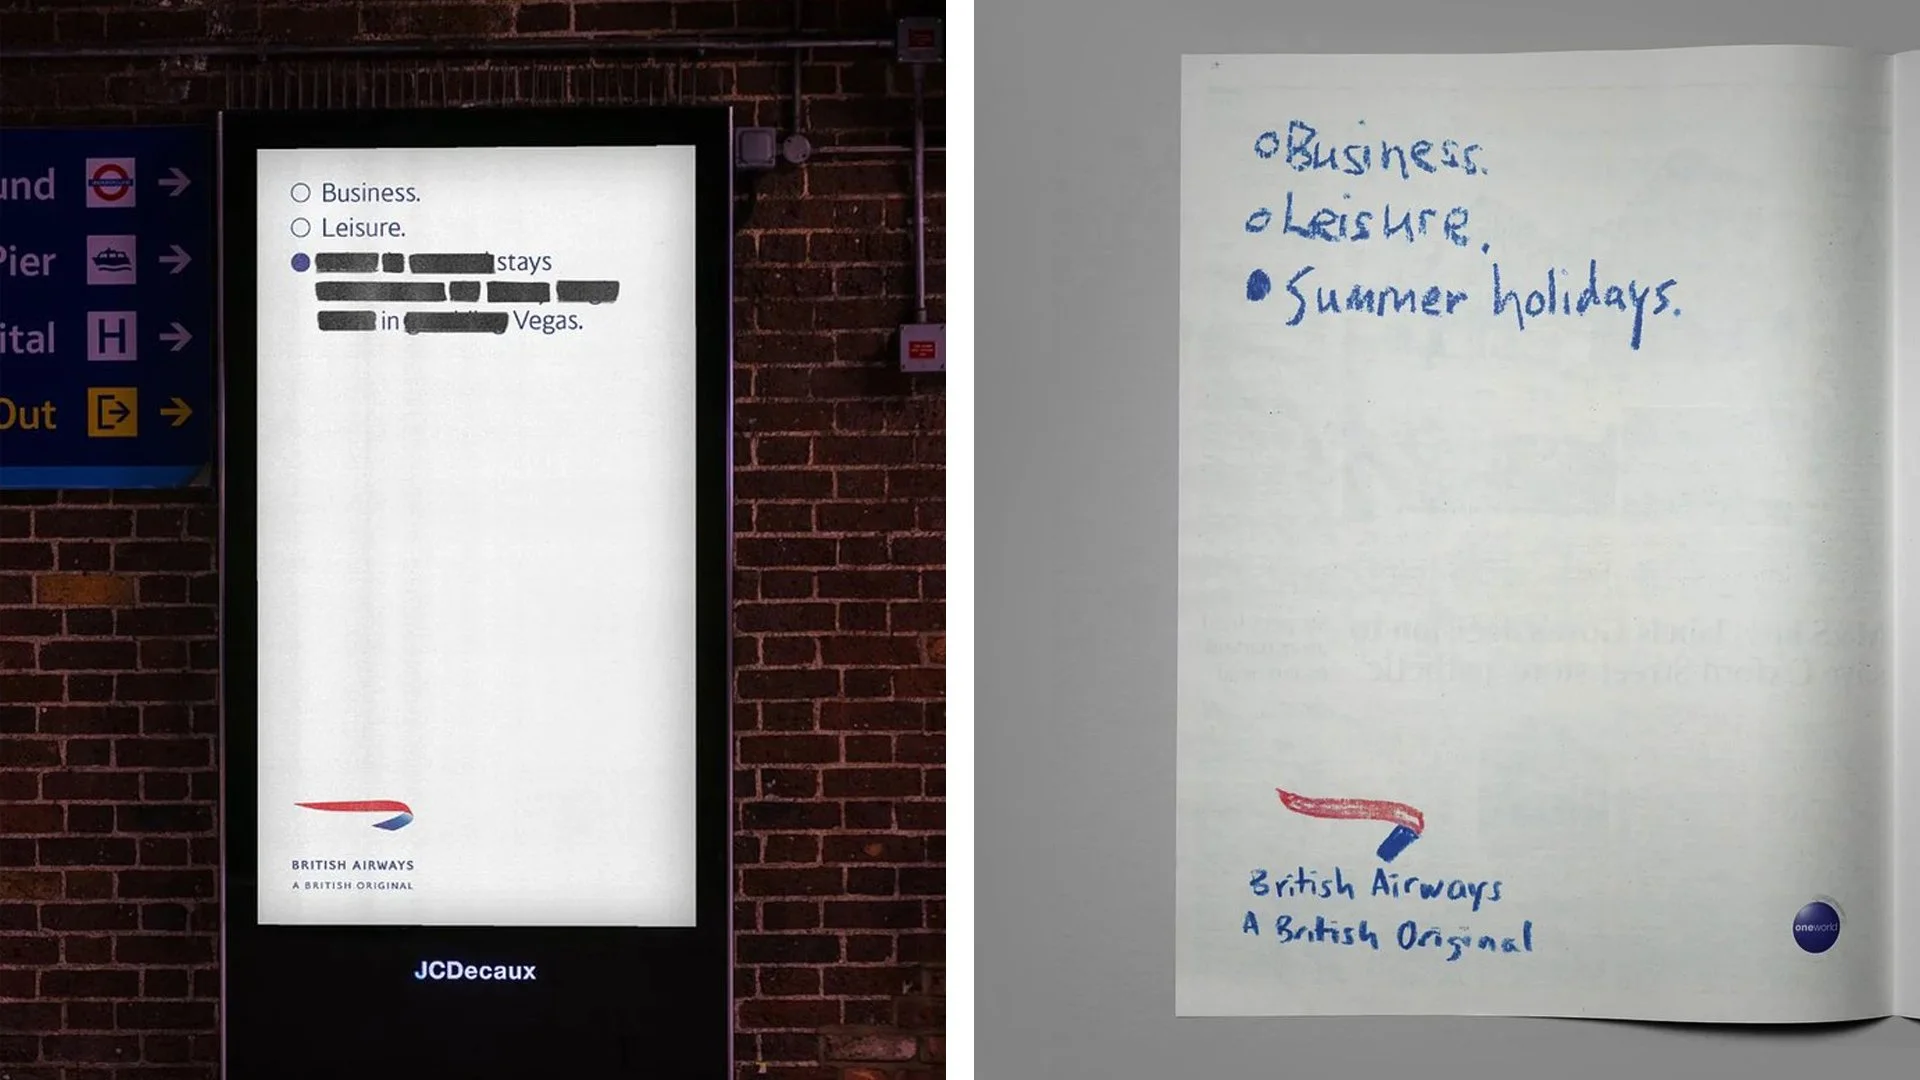 und
Pier
ital
Out
H
Business.
Leisure.
stays
in Vegas.
BRITISH AIRWAYS
A BRITISH ORIGINAL
JCDecaux
Business.
Leisure.
Summer holidays.
British Airways
A British Original
oneworld